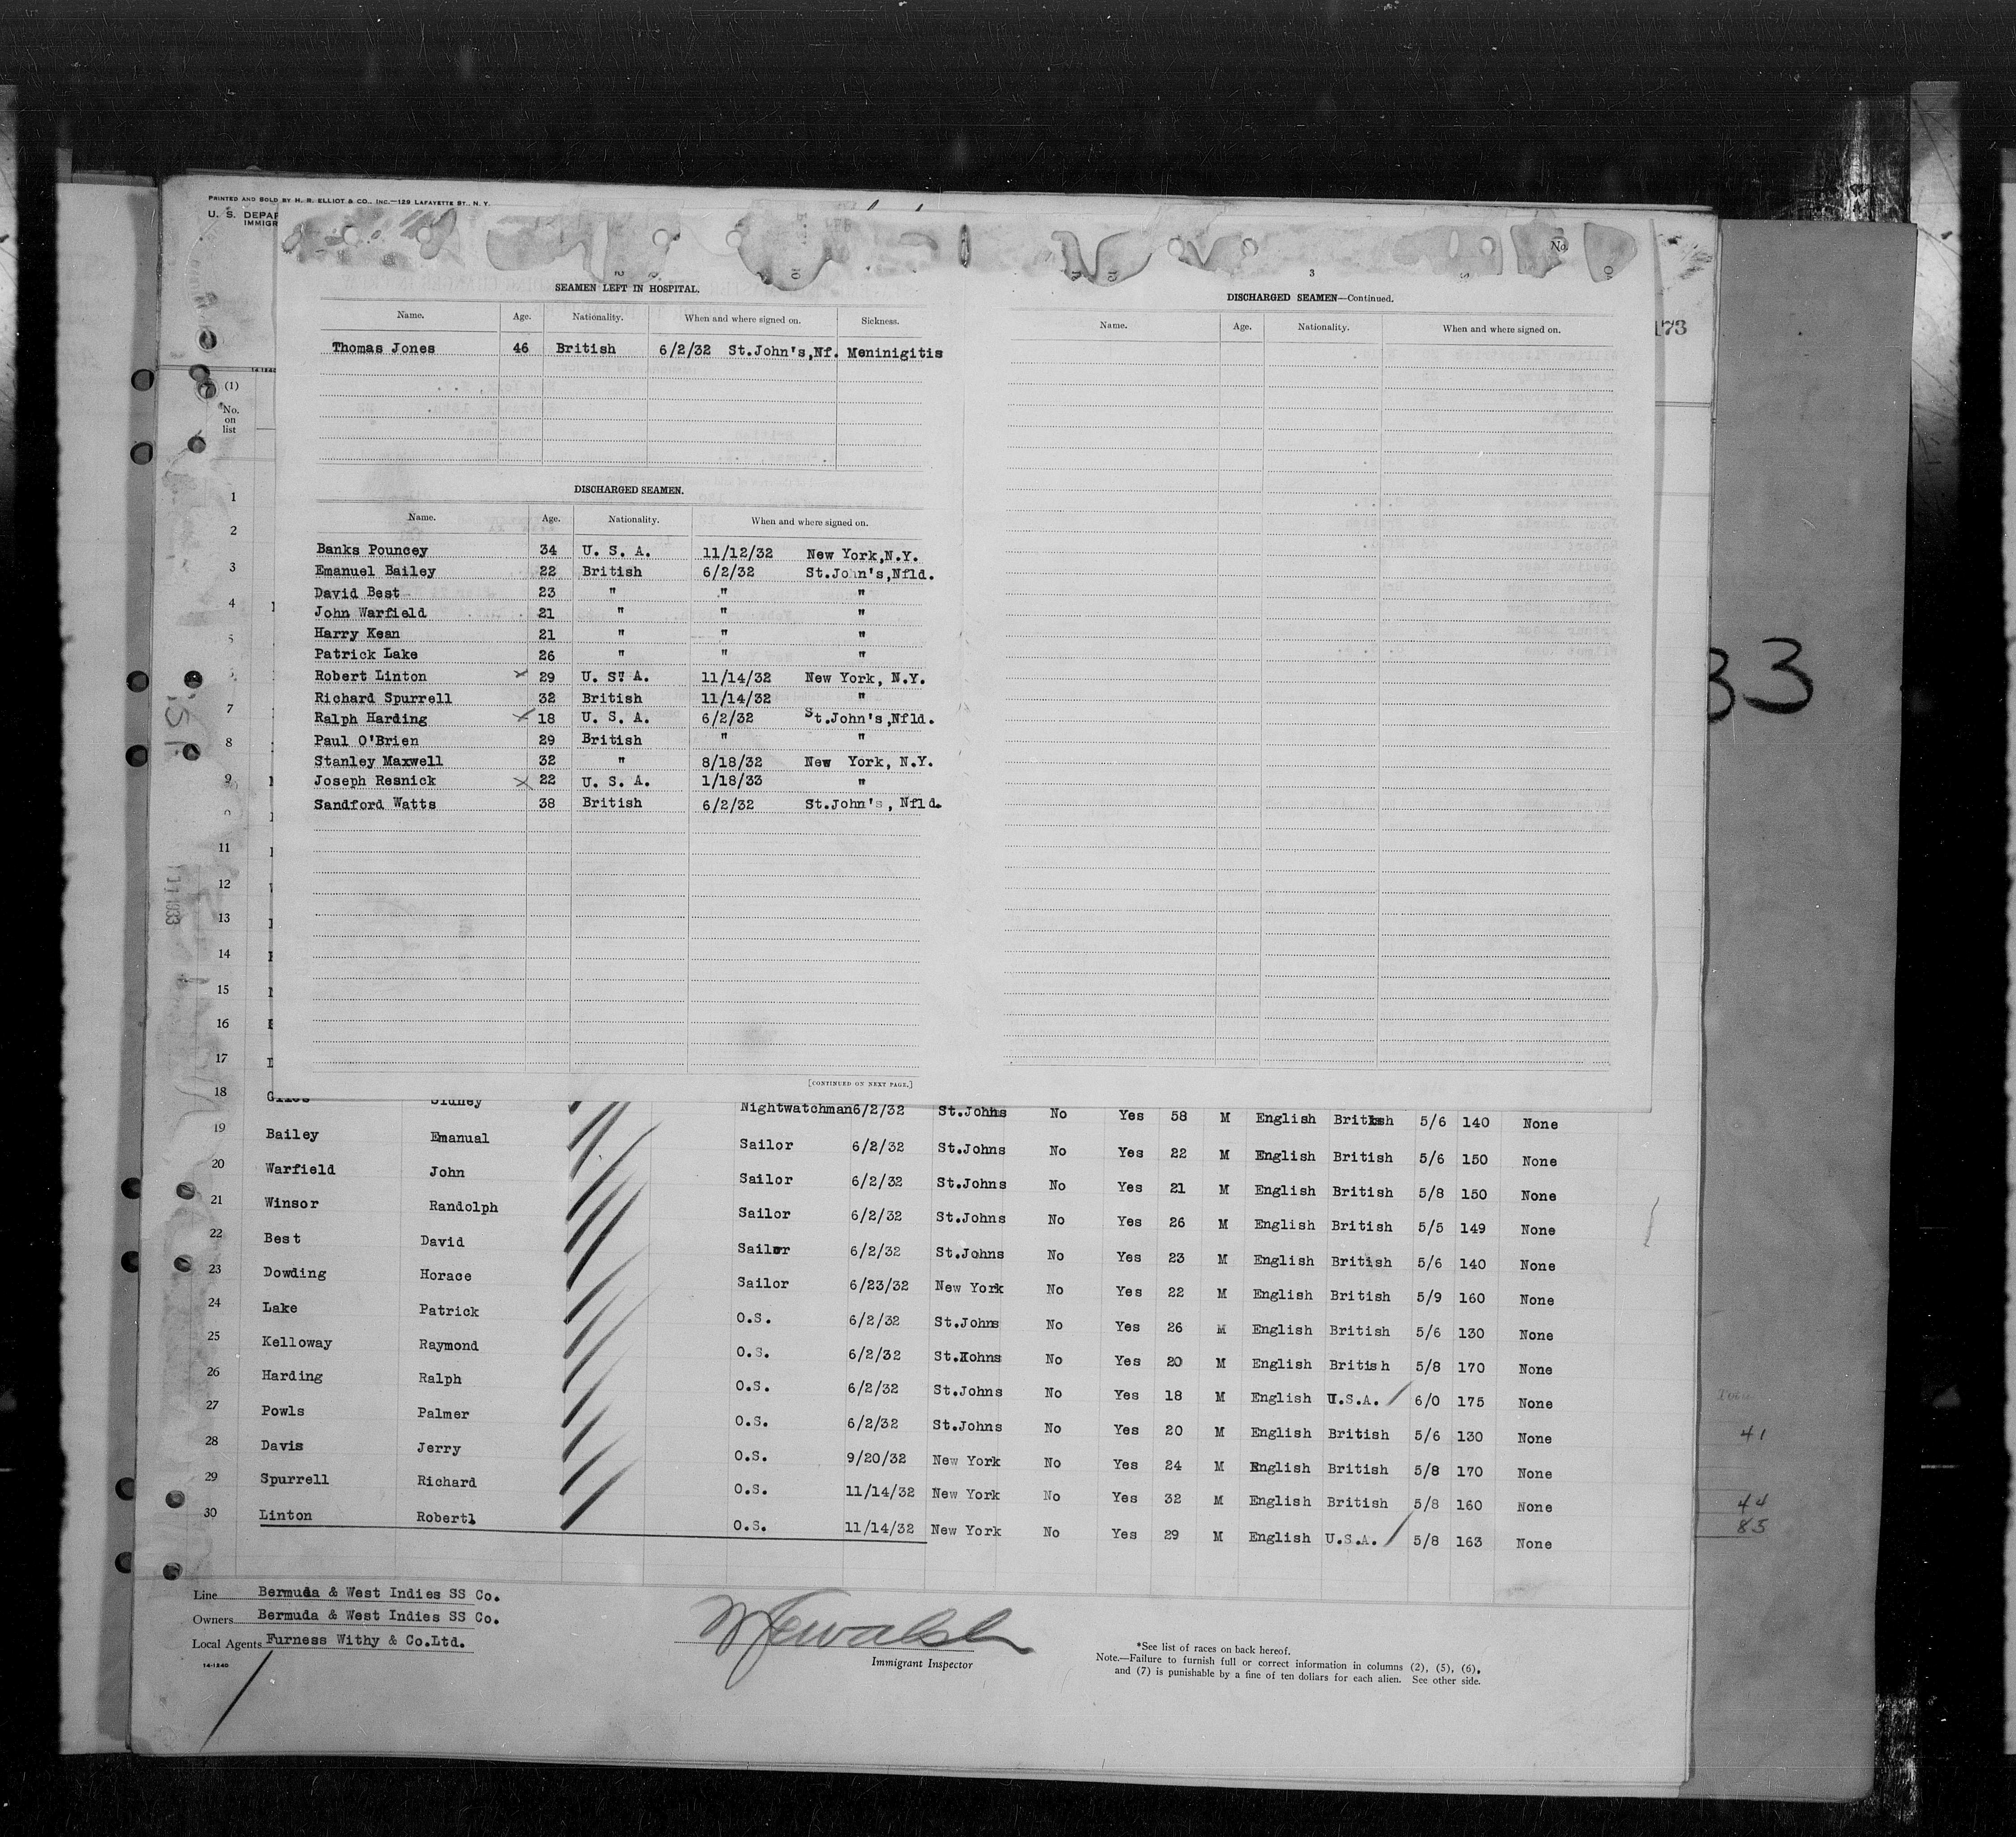 PRINTED AND SOLD BY H. R. ELLIOT & CO., INC.—129 LAFAYETTE ST., N. Y.
U. S. DEPAR
IMMIGR
No.
3
173
SEAMEN LEFT IN HOSPITAL.
Name. Age. Nationality. When and where signed on. Sickness.
Thomas Jones 46 British 6/2/32 St.John's,Nf. Meninigitis
DISCHARGED SEAMEN.
Name. Age. Nationality. When and where signed on.
Banks Pouncey 34 U. S. A. 11/12/32 New York,N.Y.
Emanuel Bailey 22 British 6/2/32 St.John's,Nfld.
David Best 23 " " "
John Warfield 21 " " "
Harry Kean 21 " " "
Patrick Lake 26 " " "
Robert Linton 29 U. S. A. 11/14/32 New York, N.Y.
Richard Spurrell 32 British 11/14/32 "
Ralph Harding 18 U. S. A. 6/2/32 St.John's,Nfld.
Paul O'Brien 29 British " "
Stanley Maxwell 32 " 8/18/32 New York, N.Y.
Joseph Resnick 22 U. S. A. 1/18/33 "
Sandford Watts 38 British 6/2/32 St.John's, Nfld.
[CONTINUED ON NEXT PAGE.]
DISCHARGED SEAMEN—Continued.
Name. Age. Nationality. When and where signed on.
(1)
No.
on
list
1
2
3
4
5
7
8
9
11
12
13
14
15
16
17
18 Sidney Nightwatchman 6/2/32 St.Johns No Yes 58 M English British 5/6 140 None
19 Bailey Emanual Sailor 6/2/32 St.Johns No Yes 22 M English British 5/6 150 None
20 Warfield John Sailor 6/2/32 St.Johns No Yes 21 M English British 5/8 150 None
21 Winsor Randolph Sailor 6/2/32 St.Johns No Yes 26 M English British 5/5 149 None
22 Best David Sailor 6/2/32 St.Johns No Yes 23 M English British 5/6 140 None
23 Dowding Horace Sailor 6/23/32 New York No Yes 22 M English British 5/9 160 None
24 Lake Patrick O.S. 6/2/32 St.Johns No Yes 26 M English British 5/6 130 None
25 Kelloway Raymond O.S. 6/2/32 St.Xohns No Yes 20 M English British 5/8 170 None
26 Harding Ralph O.S. 6/2/32 St.Johns No Yes 18 M English U.S.A. 6/0 175 None
27 Powls Palmer O.S. 6/2/32 St.Johns No Yes 20 M English British 5/6 130 None
28 Davis Jerry O.S. 9/20/32 New York No Yes 24 M English British 5/8 170 None
29 Spurrell Richard O.S. 11/14/32 New York No Yes 32 M English British 5/8 160 None
30 Linton Robert O.S. 11/14/32 New York No Yes 29 M English U.S.A. 5/8 163 None
33
41
44
85
Line Bermuda & West Indies SS Co.
Owners Bermuda & West Indies SS Co.
Local Agents Furness Withy & Co.Ltd.
14-1240
Immigrant Inspector
*See list of races on back hereof.
Note.—Failure to furnish full or correct information in columns (2), (5), (6),
and (7) is punishable by a fine of ten dollars for each alien. See other side.